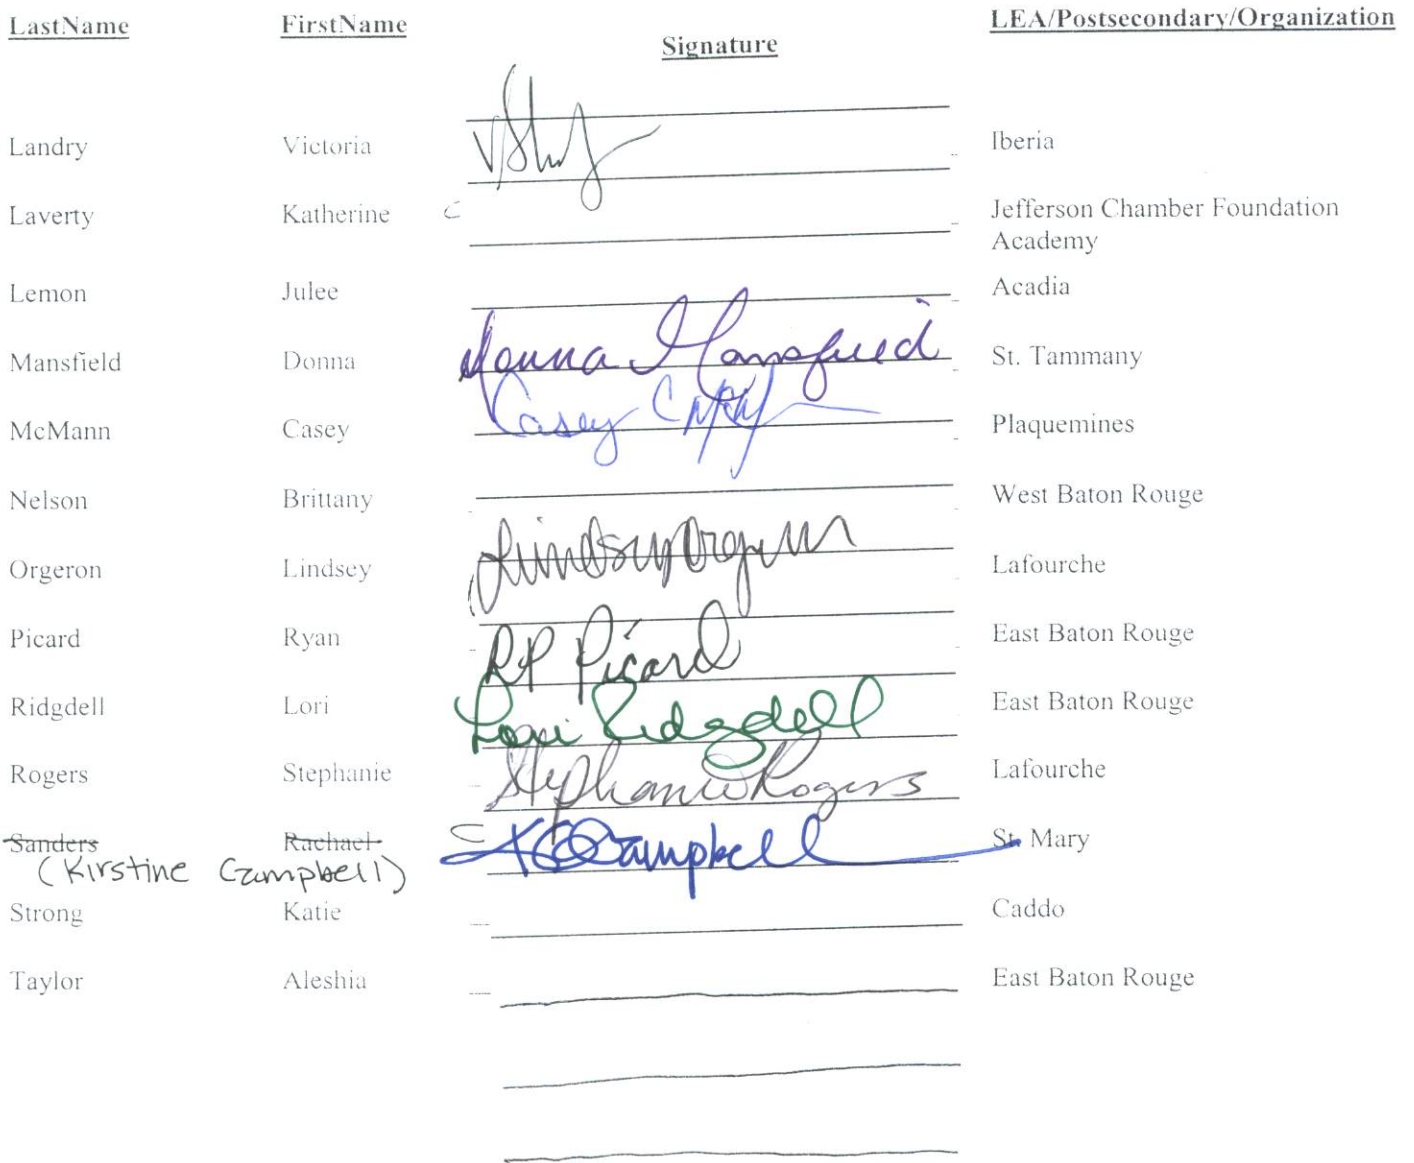 LastName FirstName Signature LEA/Postsecondary/Organization
Landry Victoria Iberia
Laverty Katherine Jefferson Chamber Foundation
Academy
Lemon Julee Acadia
Mansfield Donna Donna Mansfield St. Tammany
McMann Casey Casey Plaquemines
Nelson Brittany West Baton Rouge
Orgeron Lindsey Lindsey Orgeron Lafourche
Picard Ryan RP Picard East Baton Rouge
Ridgdell Lori Lori Ridgdell East Baton Rouge
Rogers Stephanie Stephanie Rogers Lafourche
Sanders Rachael KCampbell St. Mary
(Kirstine Campbell)
Strong Katie Caddo
Taylor Aleshia East Baton Rouge